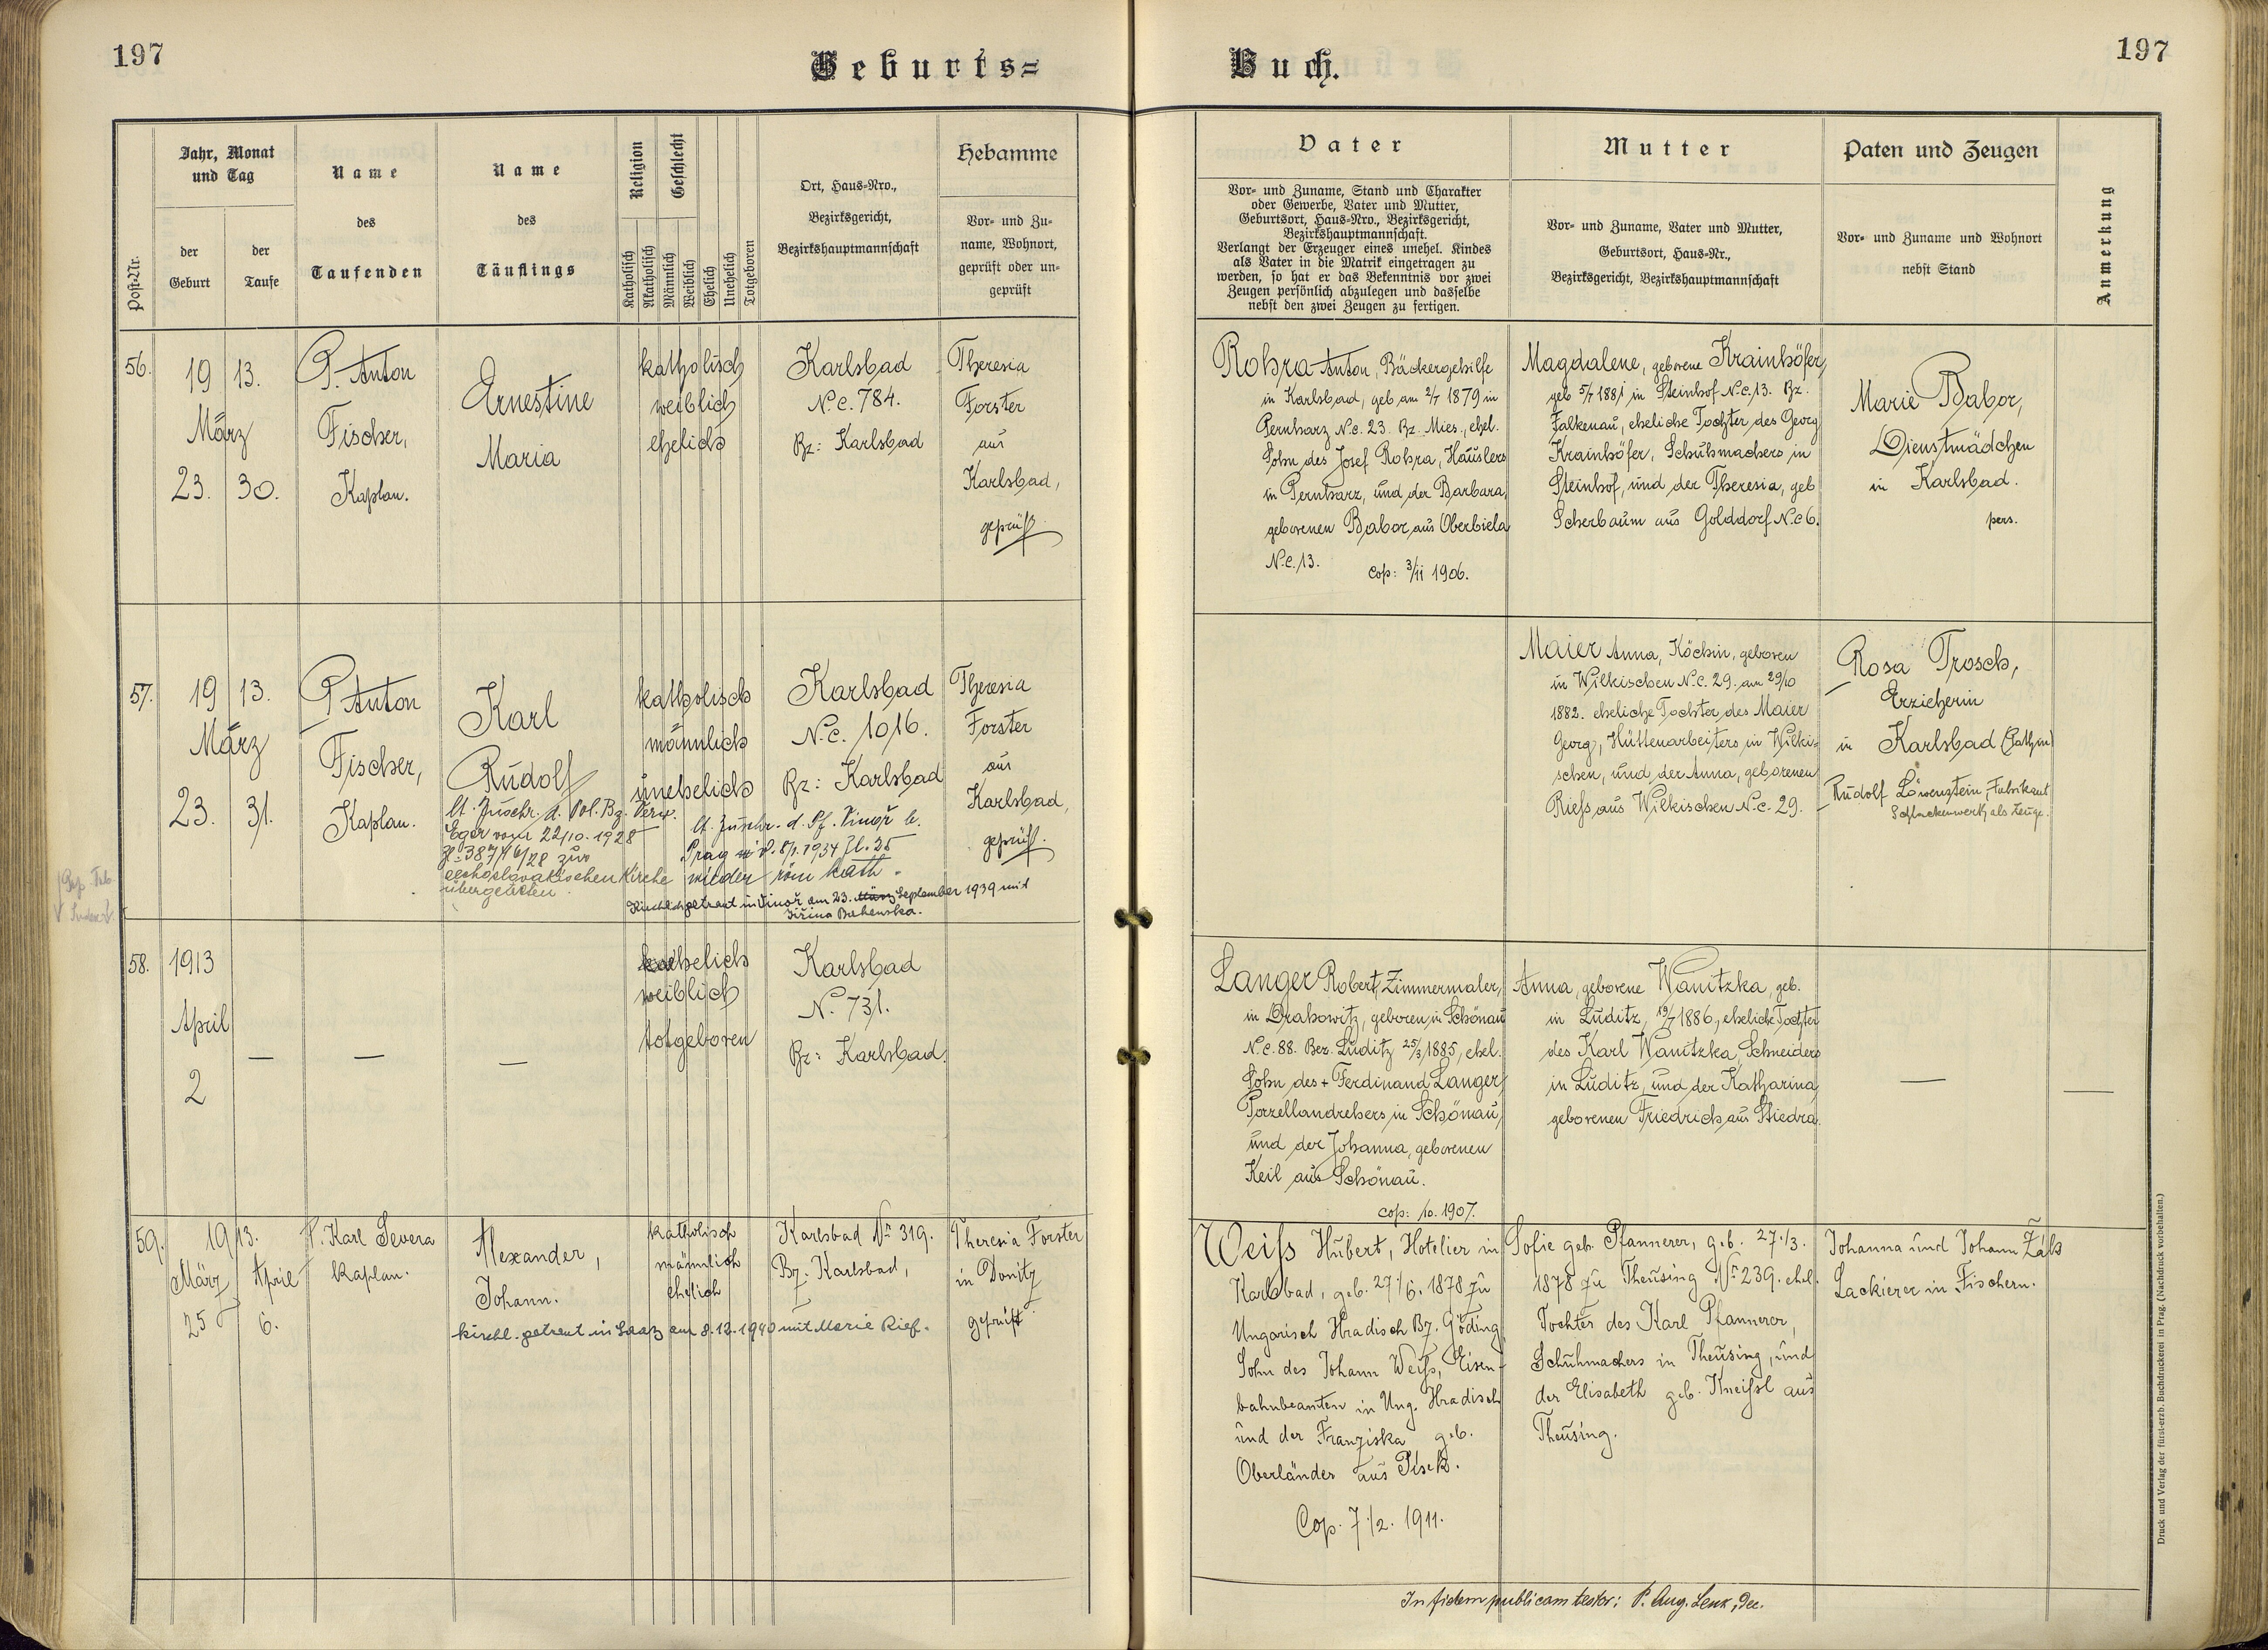 197
Geburts=
Buch.
197
Post-Nr.
Jahr, Monat
und Tag
der
Geburt
der
Taufe
Name
des
Taufenden
Name
des
Täuflings
Religion
Geschlecht
Katholisch
Akatholisch
Männlich
Weiblich
Ehelich
Unehelich
Totgeboren
Ort, Haus=Nro.,
Bezirksgericht,
Bezirkshauptmannschaft
Hebamme
Vor= und Zu=
name, Wohnort,
geprüft oder un=
geprüft
Vater
Vor= und Zuname, Stand und Charakter
oder Gewerbe, Vater und Mutter,
Geburtsort, Haus=Nro., Bezirksgericht,
Bezirkshauptmannschaft.
Verlangt der Erzeuger eines unehel. Kindes
als Vater in die Matrik eingetragen zu
werden, so hat er das Bekenntnis vor zwei
Zeugen persönlich abzulegen und dasselbe
nebst den zwei Zeugen zu fertigen.
Mutter
Vor= und Zuname, Vater und Mutter,
Geburtsort, Haus=Nr.,
Bezirksgericht, Bezirkshauptmannschaft
Paten und Zeugen
Vor= und Zuname und Wohnort
nebst Stand
Anmerkung
56.
19 13.
März
23. 30.
P. Anton
Fischer,
Kaplan.
Ernestine
Maria
katholisch
weiblich
ehelich
Karlsbad
N.c. 784.
Bz: Karlsbad
Theresia
Forster
aus
Karlsbad,
geprüft.
Rohra Anton, Bäckergehilfe
in Karlsbad, geb am 2/7 1879 in
Pernharz N.c. 23. Bz. Mies., ehel.
Sohn des Josef Rohra, Häuslers
in Pernharz, und der Barbara,
geborenen Babor aus Oberbiela
N.c. 13.
Cop: 3/11 1906.
Magdalene, geborene Krainhöfer,
geb 5/7 1881 in Steinhof N.c. 13. Bz.
Falkenau, eheliche Tochter des Georg
Krainhöfer, Schuhmachers in
Steinhof, und der Theresia, geb
Scherbaum aus Golddorf N.c 6.
Marie Babor,
Dienstmädchen
in Karlsbad.
pers.
57.
19 13.
März
23. 31.
P. Anton
Fischer,
Kaplan.
Karl
Rudolf
lt. Zuschr. d. Pol. Bz. Verw.
Eger vom 22/10. 1928
zur
čechoslovakischen Kirche
übergetreten.
katholisch
männlich
unehelich
lt. Zuschr. d. Pf. Vinoř b.
Prag v. 8/1. 1934 Zl. 25
wieder röm kath.
Kirchlich getraut in Vinoř am 23. März September 1939 mit
Karlsbad
N.c. 1016.
Bz: Karlsbad
Theresia
Forster
aus
Karlsbad,
geprüft.
Maier Anna, Köchin, geboren
in Wilkischen N.c. 29. am 29/10
1882. eheliche Tochter des Maier
Georg, Hüttenarbeiters in Wilki=
schen, und der Anna, geborenen
Riess aus Wilkischen N.c. 29.
Rosa Trosch,
Erzieherin
in Karlsbad (Pathin)
Rudolf Löwenstein, Fabrikant
Schlackenwerth, als Zeuge.
58.
1913
April
2
—
—
—
ehelich
weiblich
totgeboren
Karlsbad
N. 731.
Bz: Karlsbad.
Langer Robert, Zimmermaler,
in Drahowitz, geboren in Schönau
N.c. 88. Bez. Luditz 25/3 1885, ehel.
Sohn des + Ferdinand Langer,
Porzellandrehers in Schönau,
und der Johanna, geborenen
Keil aus Schönau.
cop: 10. 1907.
Anna, geborene Wanitzka, geb.
in Luditz, 19/7 1886, eheliche Tochter
des Karl Wanitzka, Schneiders
in Luditz, und der Katharina,
geborenen Friedrich aus Stiedra.
—
—
59.
19 13.
März April
25 6.
P. Karl Severa
Kaplan.
Alexander,
Johann.
kirchl. getraut in Saaz am 8.12.1940 mit Marie Rief.
katholisch
männlich
ehelich
Karlsbad Nr 319.
Bz: Karlsbad,
Theresia Forster
in Donitz
geprüft
Weiss Hubert, Hotelier in
Karlsbad, geb. 27./6. 1878 zu
Ungarisch Hradisch Bz. Göding
Sohn des Johann Weiss, Eisen-
bahnbeamten in Ung. Hradisch
und der Franziska geb.
Oberländer aus Pisek.
Cop. 7./2. 1911.
Sofie geb. Pfannerer, geb. 27./3.
1878 zu Theusing Nr 239. ehel.
Tochter des Karl Pfannerer,
Schuhmachers in Theusing, und
der Elisabeth geb. Kneissl aus
Theusing.
Johanna und Johann
Lackierer in Fischern.
In fidem publicam testor: P. Aug. Lenk, Dec.
Druck und Verlag der fürst-erzb. Buchdruckerei in Prag. (Nachdruck vorbehalten.)